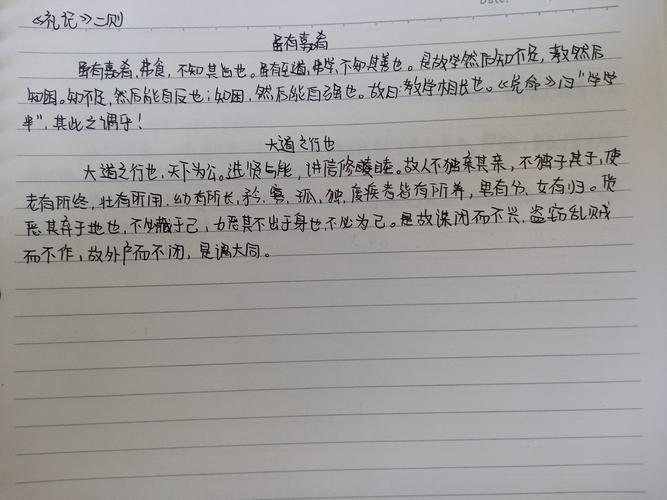 《礼记》二则
虽有嘉肴
虽有嘉肴,弗食,不知其旨也。虽有至道,弗学,不知其善也。是故学然后知不足,教然后
知困。知不足,然后能自反也;知困,然后能自强也。故曰:教学相长也。《兑命》曰"学学
半",其此之谓乎!
大道之行也
大道之行也,天下为公。选贤与能,讲信修睦。故人不独亲其亲,不独子其子,使
老有所终,壮有所用,幼有所长,矜、寡、孤、独、废疾者皆有所养,男有分,女有归。货
恶其弃于地也,不必藏于己,力恶其不出于身也,不必为己。是故谋闭而不兴,盗窃乱贼
而不作,故外户而不闭,是谓大同。